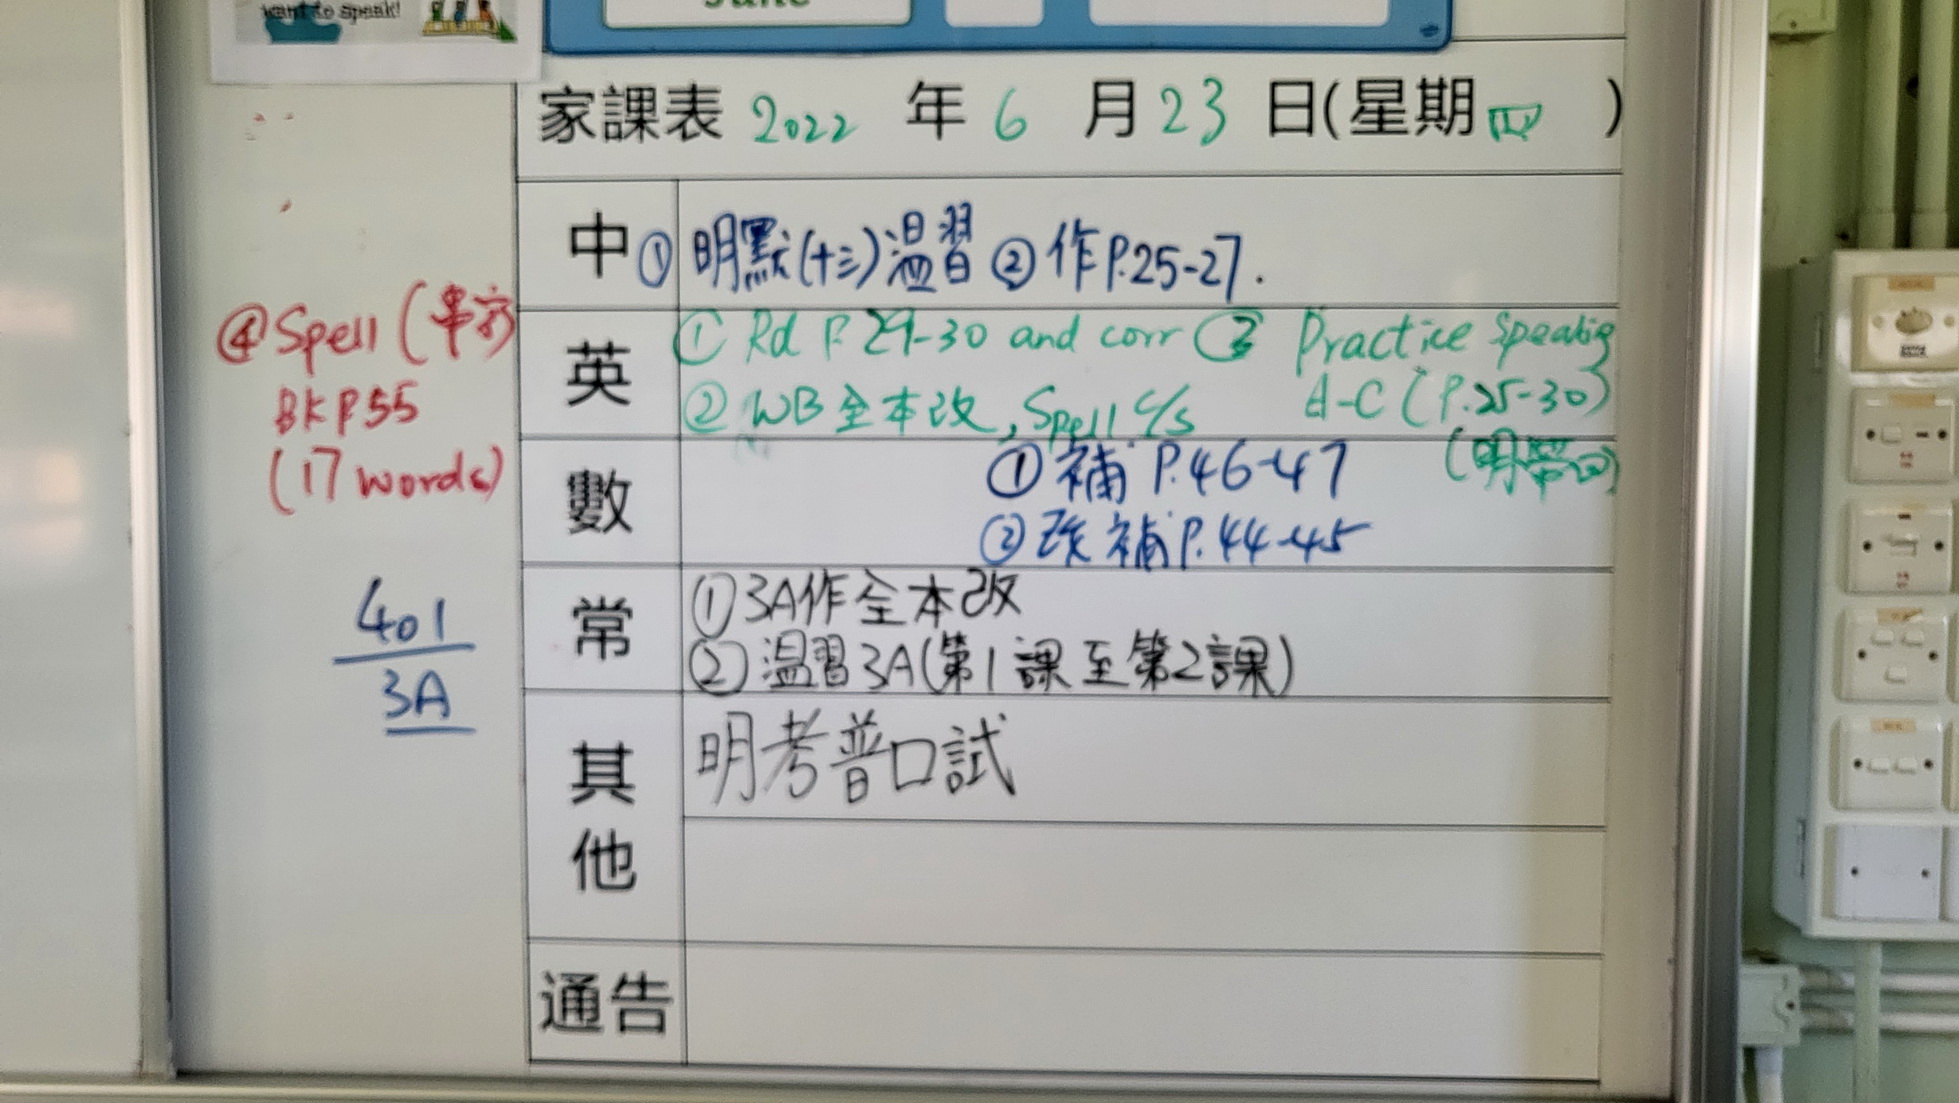 want to speak!
June
家課表 2022 年 6 月 23 日(星期四 )
中 ① 明默(十三)溫習 ② 作P.25-27.
英
① Rd P. 29-30 and corr ③ Practice Speaking
② WB 全本改, Spell c/s A-C (P.25-30)
(明帶回)
④ Spell (串字)
BK P55
(17 words)
數
① 補 P.46-47
② 改補 P.44-45
常
① 3A作全本改
② 溫習3A(第1課至第2課)
401
3A
其他
明考普口試
通告